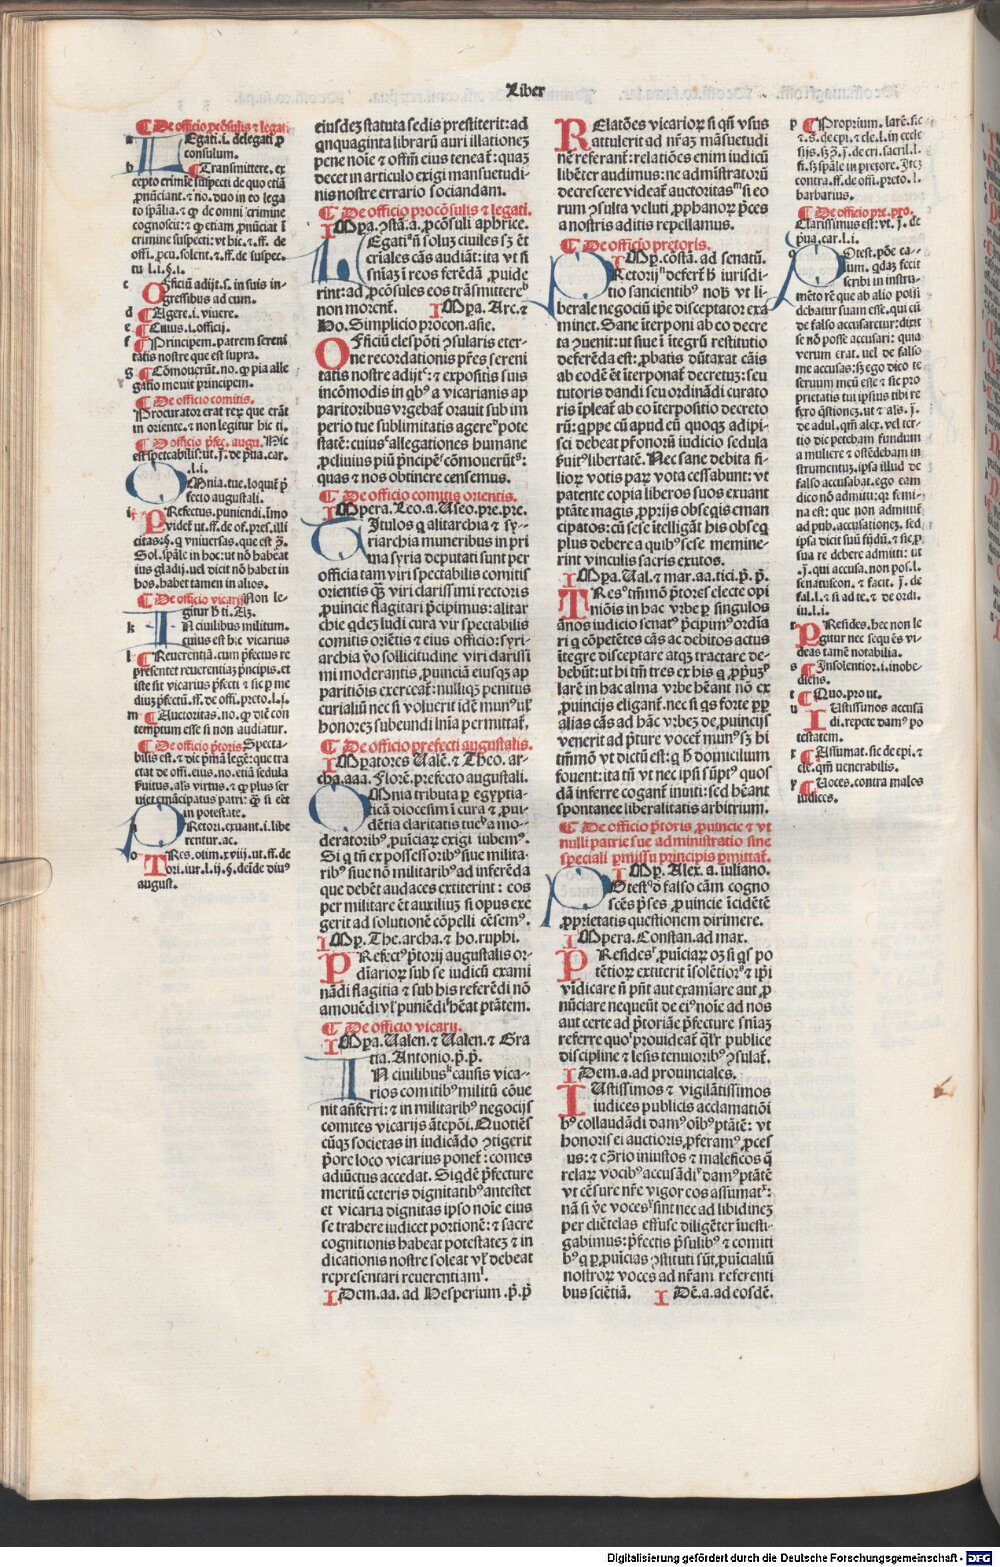 Liber
¶ De officio ꝓcōsulis ⁊ legati.
a Legati.i. delegati ꝓ
consulum.
b ¶ Transmittere. ex
cepto crimīe suspecti de quo etiā
ꝓnūciant.⁊ no. duo in eo lega
to spālia.⁊ ꝙ de omni crimine
cognoscit: ⁊ ꝙ etiam ꝓnūciat ī
crimine suspecti: vt hic.⁊.ff. de
offi. ꝓcu. solent.⁊.ff. de suspec.
tu l.i.§.i.
c Officiū adijt.s. in suis in
gressibus ad eum.
d ¶ Agere.i. viuere.
e ¶ Cuius.i. officij.
f ¶ Principem. patrem sereni
tatis nostre que est supra.
g ¶ Cōmouerūt. no. ꝙ pia alle
gatio mouit principem.
¶ De officio comitis.
Procurator erat rerum que erāt
in oriente.⁊ non legitur hic ti.
¶ De officio p̄fec. augu. Hic
est spectabilis: ut.j. de p̄ua. car.
l.i.
Omnia. tue. loquit̄ p̄
fecto augustali.
i Prefectus. puniendi. īmo
videt̄ ut.ff. de of. pres. illi
citas.§. q vniuersas. que est ꝯ̄.
Sol. spāle in hoc: ut nō habeat
ius gladij. uel dicit nō habet in
hos. habet tamen in alios.
¶ De officio vicarij Non le-
gitur h̄ ti. Az.
k In ciuilibus militum.
cuius est hic vicarius
l ¶ Reuerentiā. cum p̄fectus re
p̄sentet reuerentiaꝫ p̄ncipis. et
iste sit vicarius p̄fecti ⁊ sic ꝑ me
diuꝫ p̄fectū.ff. de offi. preto. l.j.
m ¶ Auctoritas. no. ꝙ diē con
temptum esse si non audiatur.
¶ De officio p̄toris Specta-
bilis est.⁊ dic p̄mā legē: que tra
ctat de offi. eius. no. etiā sedula
ẜuitus. als̄ virtus.⁊ ꝙ plus ser
uiet emācipatus patri: ꝙ si eēt
in potestate.
n Pretori. exuant.i. libe
rentur. ac.
o Tres. olim. xviij. ut.ff. de
ori. iur. l.ij.§. deīde diuꝰ
august.
eiusdeꝫ statuta sedis prestiterit: ad
qnquaginta librarū auri illationeꝫ
pene noīe ⁊ offm̄ eius teneat̄: quaꝫ
decet in articulo exigi mansuetudi-
nis nostre errario sociandam.
¶ De officio procōsulis ⁊ legati.
Impa. ꝯsta. a. ꝓcōsuli aphrice.
Legatiᵃ nō soluꝫ ciuiles sꝫ et
criales cās audiāt: ita vt si
sn̄iaꝫ ī reos ferēdā ꝓuide
rint: ad ꝓcōsules eos trāsmittereᵇ
non morent̄. Impa. Arc.⁊
Ho. Simplicio procon. asie.
Officiū elespōti ꝯsularis eter-
ne recordationis pr̄es sereni
tatis nostre adijtᶜ: ⁊ expositis suis
incōmodis in qbꝰ a vicarianis ap
paritoribus vrgebat̄ orauit sub im
perio tue sublimitatis agereᵈ pote
statē: cuiusᵉ allegationes humane
ꝓcliuius piū p̄ncipēᶠ cōmouerūtᵍ:
quas ⁊ nos obtinere censemus.
¶ De officio comitis orientis.
Impera. Leo. a. Useo. pre. pre.
Titulos q alitarchia ⁊ sy-
riarchia muneribus in pri
ma syria deputati sunt per
officia tam viri spectabilis comitis
orientis qꝫ viri clarissimi rectoris
ꝓuincie flagitari p̄cipimus: alitar
chie qdeꝫ ludi cura vir spectabilis
comitis oriētis ⁊ eius officio: syri-
archia v̄o sollicitudine viri clarissi
mi moderantis ꝓuinciā eiusqꝫ ap
paritiōis exerceat̄: nulliqꝫ penitus
curialiū nec si voluerit idē munꝰ ul̓
honoreꝫ subeundi ln̄ia permittat̄.
¶ De officio prefecti augustalis.
Impatores Ualē.⁊ Theo. ar-
cha. aaa. Florē. prefecto augustali.
Omnia tributa ꝑ egyptia-
icā diocesim ī cura ⁊ ꝓui-
dētia claritatis tueʰ a mo-
deratoribꝰ ꝓuīciarꝫ exigi iubemꝰ.
Si q tn̄ ex possessoribꝰ siue milita-
ribꝰ siue nō militaribꝰ ad inferēda
que debēt audaces extiterint: eos
per militare ēt auxiliū si opus exe
gerit ad solutionē cōpelli cēsemꝰ.
Imp. The. archa.⁊ ho. ruphi.
Prefectꝰ p̄torij augustalis or-
dīariorꝫ sub se iudicū exami
nādi flagitia ⁊ sub his referēdi nō
amouēdi vl̓ puniēdiⁱ h̄eat ptātem.
¶ De officio vicarij.
Impa. Ualen.⁊ Ualen.⁊ Gra
tia. Antonio. p̄.p̄.
In ciuilibusᵏ causis vica-
rios comitibꝰ militū cōue
nit an̄ferri: ⁊ in militaribꝰ negocijs
comites vicarijs ātepōi. Quotiēs
cūqꝫ societas in iudicādo ꝯtigerit
p̄ore loco vicarius ponet̄: comes
adiūctus accedat. Siqdē p̄fecture
meritū ceteris dignitatibꝰ antestet
et vicaria dignitas ipso noīe eius
se trahere iudicet portionē: ⁊ sacre
cognitionis habeat potestateꝫ ⁊ in
dicationis nostre soleat vl̓ debeat
representari reuerentiamˡ.
Idem. aa. ad Hesperium. p̄.p̄
Relatōes vicariorꝫ si qn̄ vsus
attulerit ad nr̄aꝫ māsuetudi
nē referant̄: relatiōes enim iudicū
libēter audimus: ne admīstratorū
decrescere videat̄ auctoritasᵐ si eo
rum ꝯsulta veluti ꝓphanorꝫ p̄ces
a nostris aditis repellamus.
¶ De officio pretoris.
Imp. cōsta. ad senatū.
Pretorijⁿ defert̄ h̄ iurisdi-
tio sancientibꝰ nob̄ vt li-
berale negociū ip̄e disceptator exa
minet. Sane īterponi ab eo decre
ta ꝯuenit: ut siue ī ītegrū restitutio
deferēda est: ꝓbatis dūtaxat cāis
ab eodē ēt īterponat̄ decretuꝫ: seu
tutoris dandi seu ordinādi curato
ris īpleat̄ ab eo īterpositio decreto
rū: qppe cū apud eū quoqꝫ adipi-
sci debeat p̄ronorū iudicio sedula
ẜuitꝰ libertatē. Nec sane debita fi-
liorꝫ votis patrꝫ vota cessabunt: vt
patente copia liberos suos exuant
ptāte magis ꝓprijs obsegis eman
cipatos: cū sese ītelligāt his obseq
plus debere a quibꝰ sese memine-
rint vinculis sacris exutos.
Impa. Ual.⁊ mar. aa. tici. p̄.p̄.
Tresᵒ tm̄mō p̄tores electe opi
niōis in hac vrbe ꝑ singulos
ānos iudicio senatꝰ p̄cipimꝰ ordīa
ri q cōpetētes cās ac debitos actus
ītegre disceptare atqꝫ tractare de-
bebūt: ut hi tm̄ tres ex his q ꝓpuꝫᵖ
larē in hac alma vrbe h̄eānt nō ex
ꝓuincijs eligant̄. nec si qs forte ꝑp
alias cās ad hāc vrbeꝫ de ꝓuincijs
venerit ad p̄ture vocet̄ munꝰ sꝫ hi
tm̄mō vt dictū est: q h̄ domicilium
fouent: ita tn̄ vt nec ipsi sūptꝰ quos
dā inferre cogant̄ inuiti: sed h̄eant
spontanee liberalitatis arbitrium.
¶ De officio p̄toris ꝓuincie ⁊ vt
nulli patrie sue administratio sine
speciali ꝑmissu principis ꝑmittat̄.
Imp. Alex. a. iuliano.
Potestᵠ ō falso cām cogno
scēs p̄ses ꝓuincie īcidētē
ꝓprietatis questionem dirimere.
Impera. Constan. ad max.
Presidesʳ ꝓuīciarꝫ oꝫ si qs po
tētiorꝫ extiterit īsolētiorˢ ⁊ ip̄i
vīdicare n̄ pn̄t aut examīare aut ꝓ
nūciare nequeūt de eiꝰ noīe ad nos
aut certe ad p̄toriāe p̄fecture sn̄iaꝫ
referre quoᵗ ꝓuideat̄ qlr̄ publice
discipline ⁊ lesis tenuioribꝰ ꝯsulat̄.
Idem. a. ad prouinciales.
Iustissimos ⁊ vigilātissimos
iudices publicis acclamatiōi
bꝰ collaudādi damꝰ oībꝰ ptātē: vt
honoris ei auctioris ꝓferamꝰ ꝓces
us: ⁊ eꝯ̄rio iniustos ⁊ maleficos q̄
relarꝫ vocibꝰ accusādiᵛ damꝰ ptātē
vt cēsure nr̄e vigor eos assumatˣ:
nā si v̄e vocesʸ sint nec ad libidineꝫ
per cliētelas effuse diligēter īuesti-
gabimus: p̄fectis p̄sulibꝰ ⁊ comiti
bꝰ q ꝑ ꝓuīcias ꝯstituti sūt ꝓuincialiū
nostrorꝫ voces ad nr̄am referenti
bus sciētiā. Idē. a. ad eosdē.
p ¶ Proprium. larē. sic
⁊.s. de epi.⁊ cle. l. in eccle
sijs. sꝫ ꝯ̄.j. de cri. sacril. l.
fi. sꝫ spāle in pretore. Itꝫ
contra.ff. de offi. preto. l.
barbarius.
¶ De officio pre. pro.
Clarissimus est: vt.j. de
p̄ua. car. l.i.
q Potest. pōe ca-
sum. qdaꝫ fecit
scribi in instru-
mēto rē que ab alio possi
debatur suam esse. qui cū
de falso accusaretur: dixit
se nō posse accusari: quia
verum erat. uel de falso
me accusas: sꝫ ego dico te
seruum meū esse ⁊ sic pro
prietatis tui ipsius tibi re
fero qōnem. ut.⁊ als̄.j.
de adul. qm̄ alex. vel ter-
tio dic petebam fundum
a muliere ⁊ ostēdebam in
strumentuꝫ. ipsa illud de
falso accusabat. ego eam
dico nō admitti: qꝛ femi-
na est: que non admittit̄
ad pub. accusationeꝫ. sed
ipsa dicit suū fūdū.⁊ sic ꝓ
sua re debere admitti: ut
.j. qui accusa. non pos. l.
senatuscon.⁊ facit.j. de
fal. l.⁊ si ad te.⁊ de ordi.
iu. l.i.
r Presides. hec non le
gitur nec sequēs vi-
deas tamē notabilia.
s ¶ Insolentior.i. inobe
diens.
t ¶ Quo. pro ut.
u Iustissimos accusā
di. repete damꝰ po
testatem.
x ¶ Assumat. sic de epi.⁊
cle. qm̄ venerabilis.
y ¶ Uoces. contra malos
iudices.
Digitalisierung gefördert durch die Deutsche Forschungsgemeinschaft - DFG